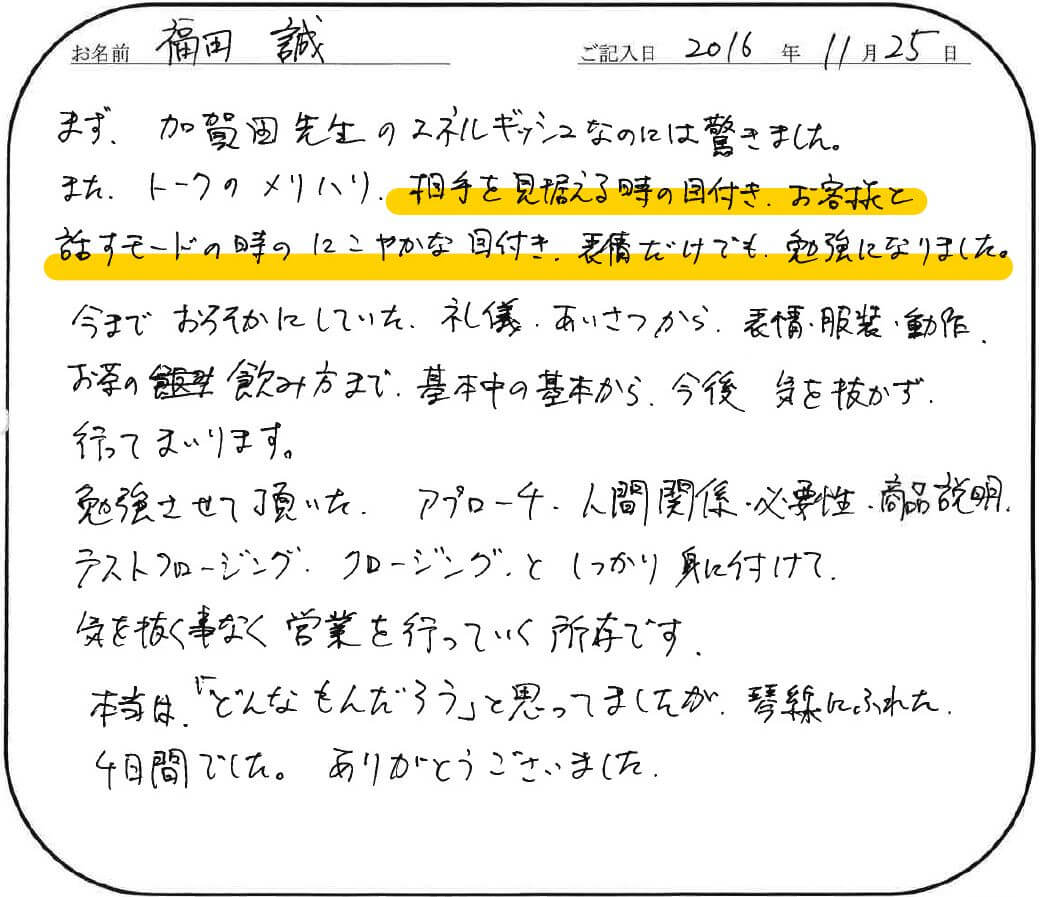 お名前 福田 誠 ご記入日 2016 年 11 月 25 日
まず、加賀田先生のエネルギッシュなのには驚きました。
また、トークのメリハリ、相手を見据える時の目付き、お客様と
話すモードの時のにこやかな目付き、表情だけでも、勉強になりました。
今までおろそかにしていた、礼儀・あいさつから、表情・服装・動作、
お茶の飲み方まで、基本中の基本から、今後 気を抜かず、
行ってまいります。
勉強させて頂いた、アプローチ・人間関係・必要性・商品説明、
テストクロージング・クロージング、と しっかり身に付けて、
気を抜く事なく営業を行っていく所存です。
本当は、「どんなもんだろう」と思ってましたが、琴線にふれた、
4日間でした。ありがとうございました。